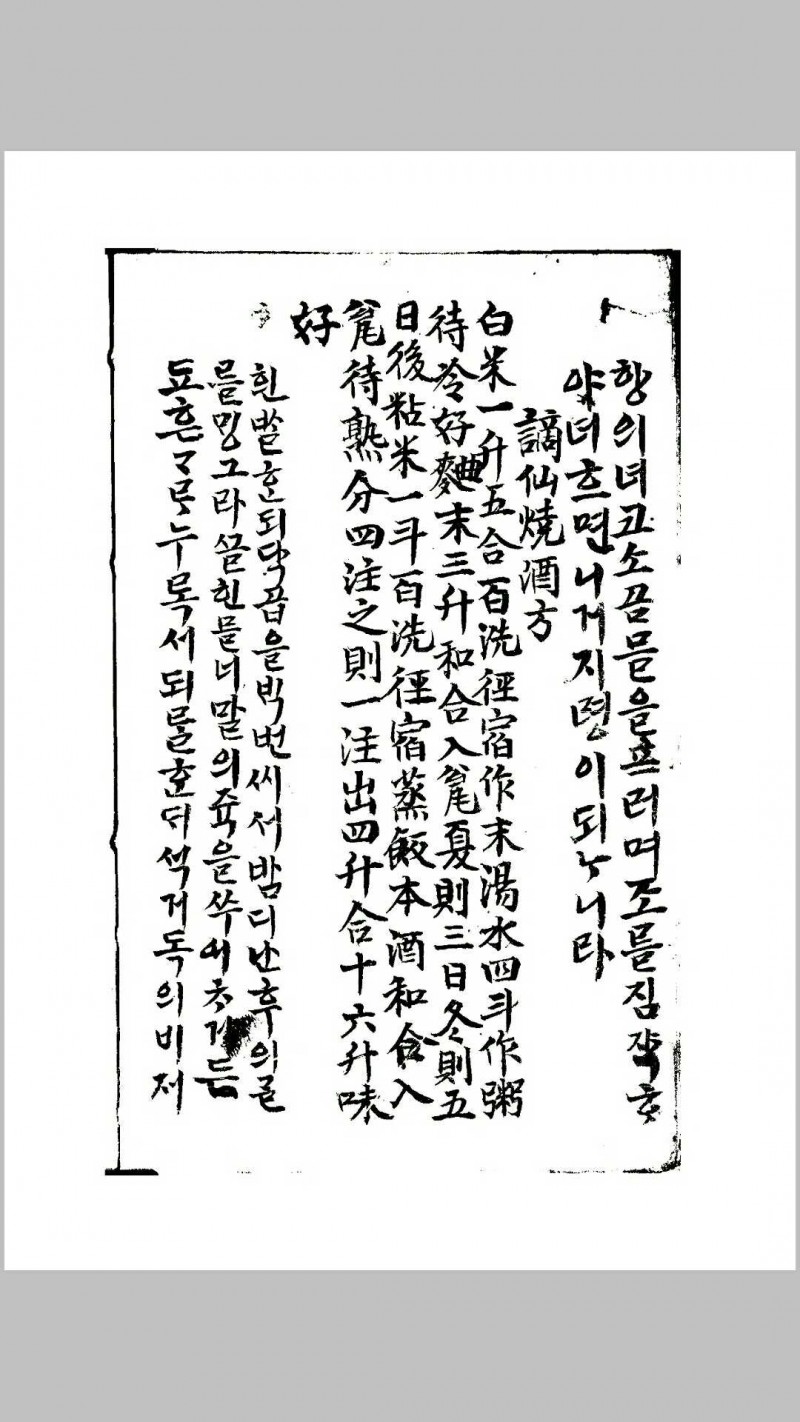 항의녀코소곰믈을프러며조믈짐쟉ᄒᆞ
야녀흐면니거지령이되ᄂᆞ니라
謫仙燒酒方
白米一升五合百洗徑宿作末湯水四斗作粥
待冷好麯末三升和合入瓮夏則三日冬則五
日後粘米一斗百洗徑宿蒸飯本酒和合入
瓮待熟分四注之則一注出四升合十六升味
好
흰ᄡᆞᆯᄒᆞᆫ되닥곱을ᄇᆡᆨ번씨서밤디난후의ᄀᆞᆯ
를ᄆᆡᆼ그라ᄭᅳᆯ힌믈너말의쥭을쑤어ᄎᆞ거든
됴흔누록서되를ᄒᆞᆫᄃᆡ섯거독의비저